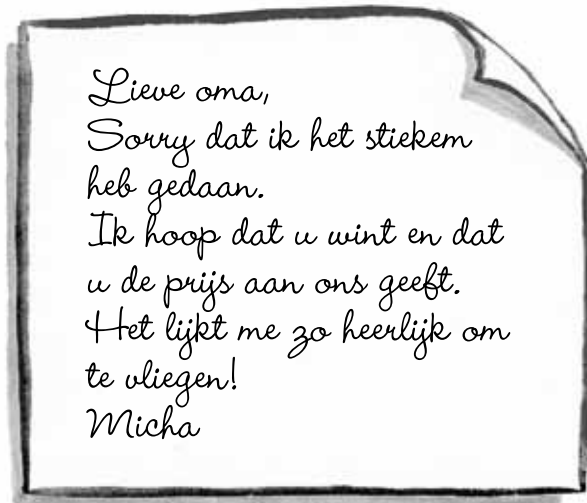 Lieve oma,
Sorry dat ik het stiekem
heb gedaan.
Ik hoop dat u wint en dat
u de prijs aan ons geeft.
Het lijkt me zo heerlijk om
te vliegen!
Micha